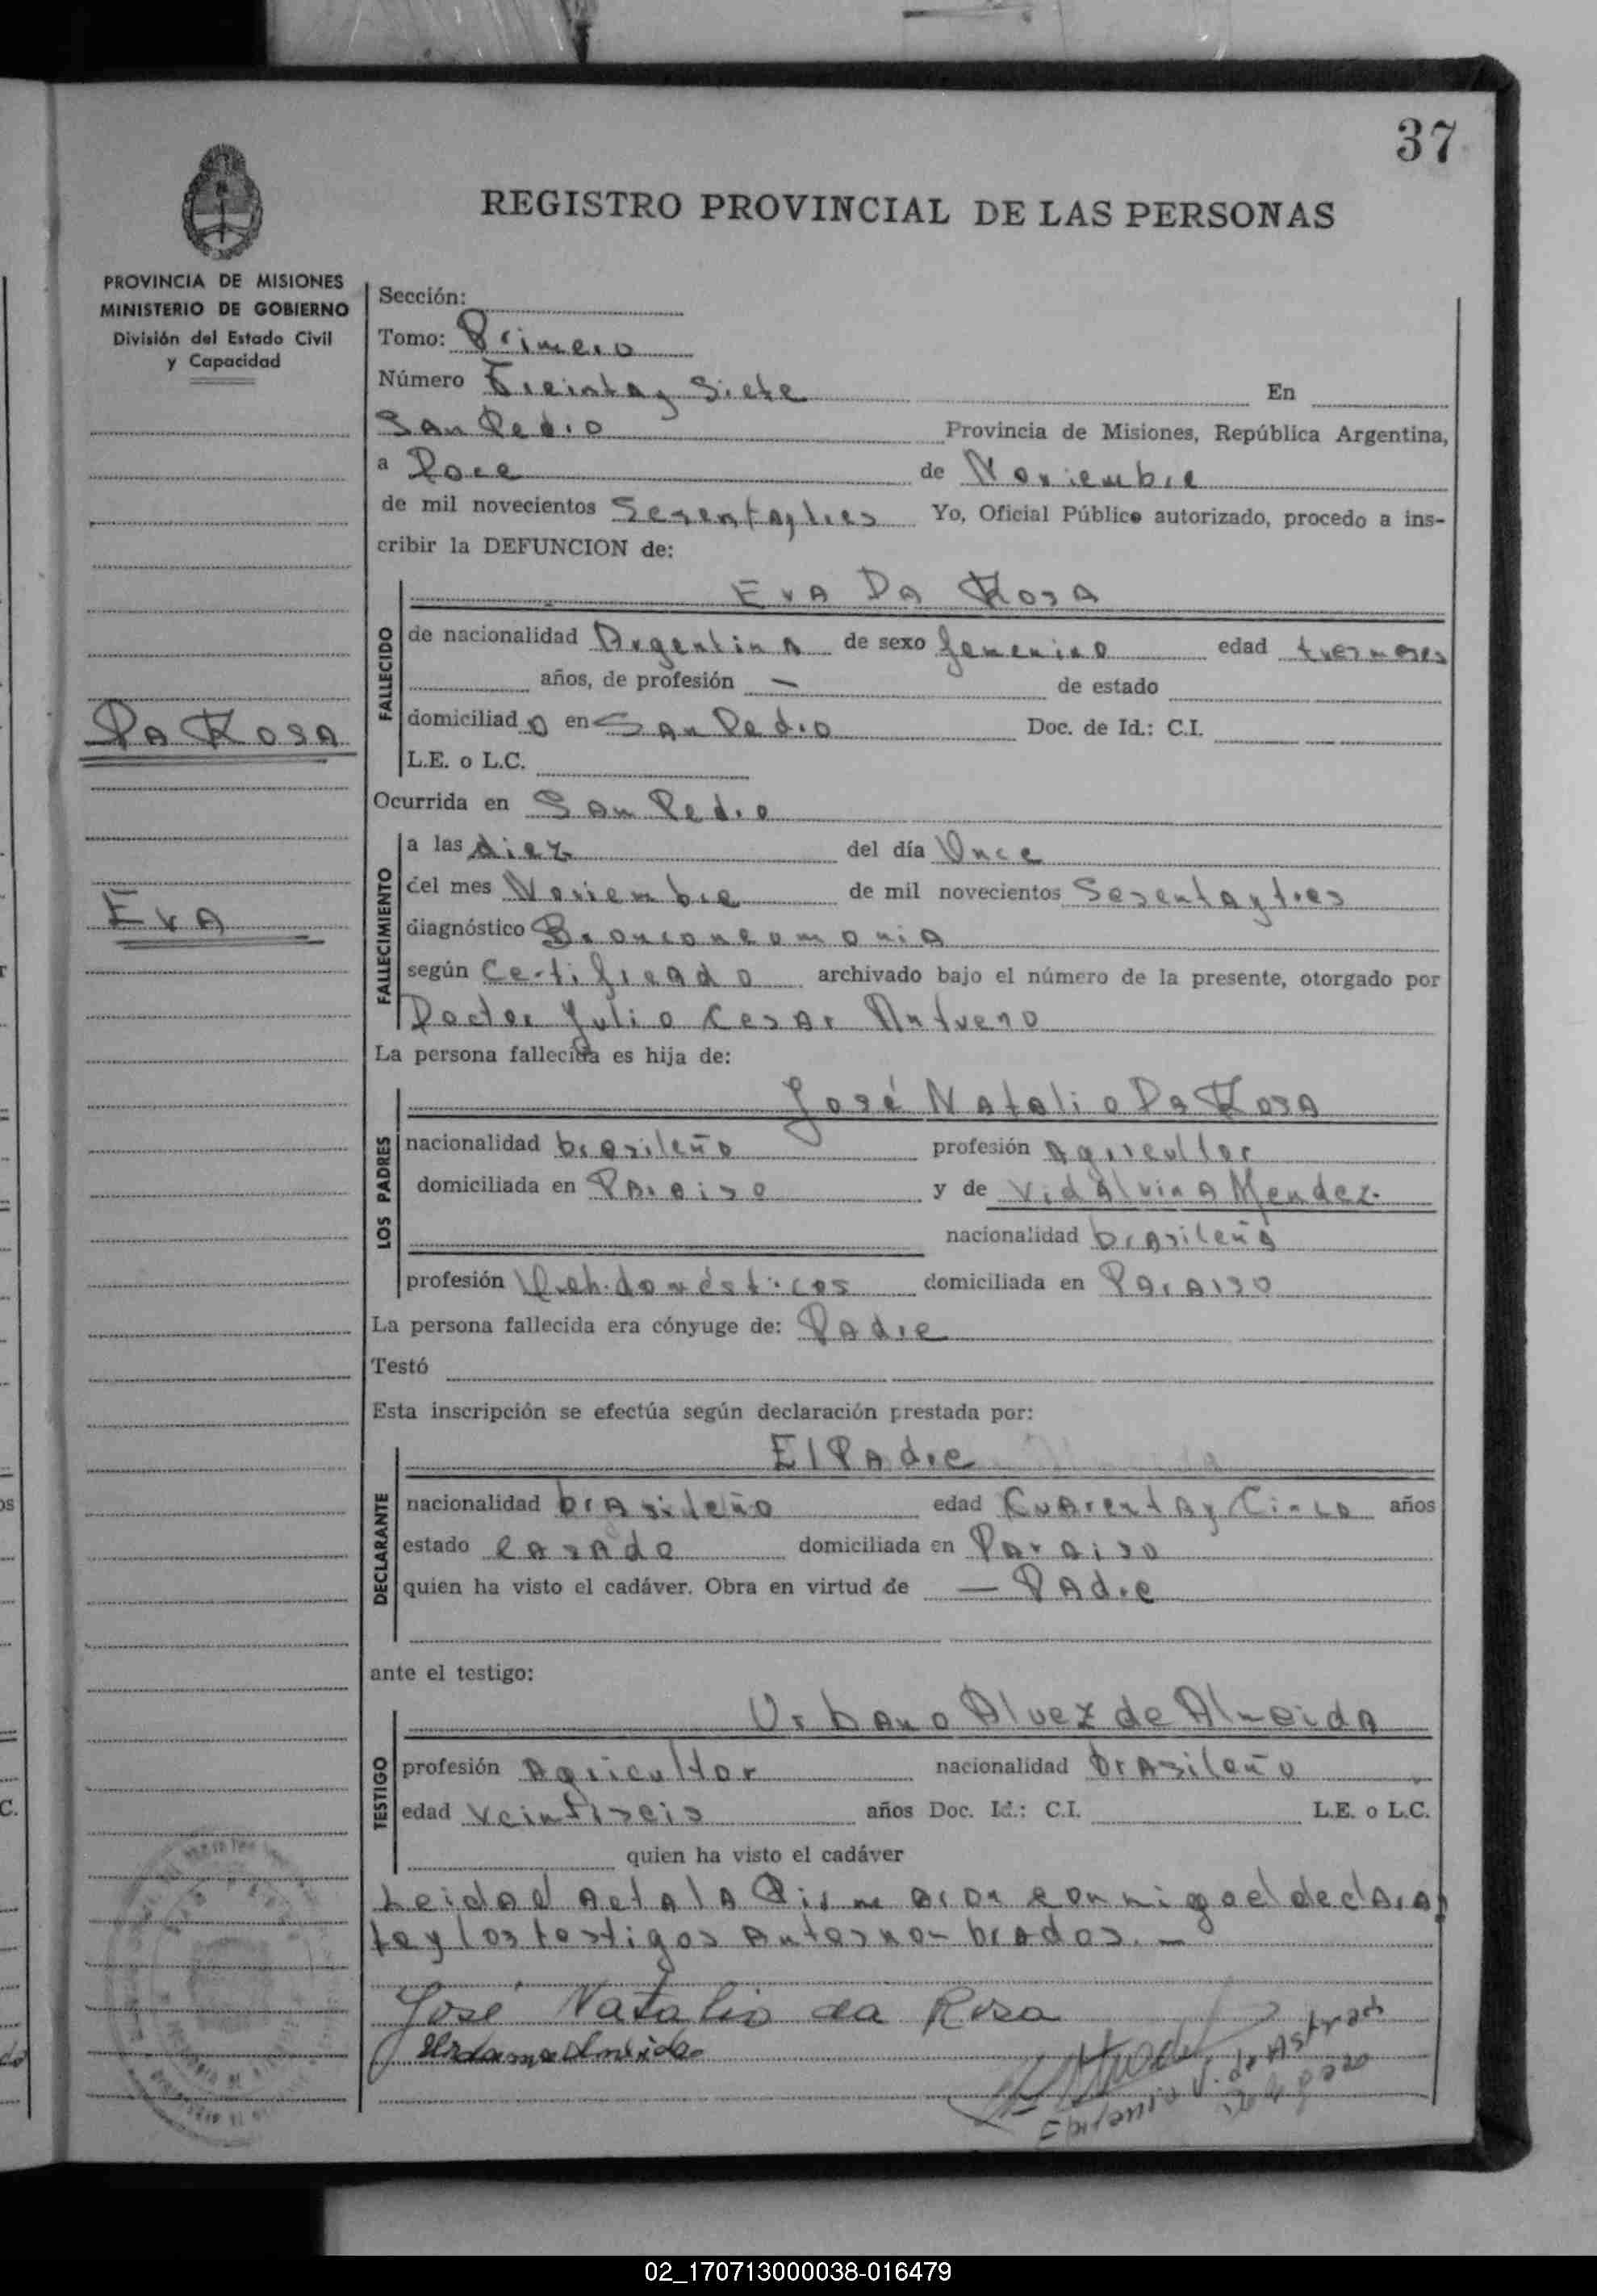 37
REGISTRO PROVINCIAL DE LAS PERSONAS
PROVINCIA DE MISIONES
MINISTERIO DE GOBIERNO
División del Estado Civil
y Capacidad
Da Rosa
Eva
Sección:
Tomo: Primero
Número Treinta y Siete En
San Pedro Provincia de Misiones, República Argentina,
a Doce de Noviembre
de mil novecientos Sesenta y tres Yo, Oficial Público autorizado, procedo a ins-
cribir la DEFUNCION de:
Eva Da Rosa
FALLECIDO
de nacionalidad Argentina de sexo femenino edad tres meses
años, de profesión — de estado
domiciliado en San Pedro Doc. de Id.: C.I.
L.E. o L.C.
Ocurrida en San Pedro
FALLECIMIENTO
a las diez del día Once
del mes Noviembre de mil novecientos Sesenta y tres
diagnóstico Bronconeomonia
según Certificado archivado bajo el número de la presente, otorgado por
Doctor Julio Cesar
La persona fallecida es hija de:
LOS PADRES
José Natalio Da Rosa
nacionalidad brasileño profesión Agricultor
domiciliada en Paraiso y de Vidalvina Mendez.
nacionalidad brasileña
profesión Queh. domésticos domiciliada en Paraiso
La persona fallecida era cónyuge de: Padre
Testó
Esta inscripción se efectúa según declaración prestada por:
DECLARANTE
El Padre
nacionalidad brasileño edad Cuarenta y Cinco años
estado casado domiciliada en Paraiso
quien ha visto el cadáver. Obra en virtud de — Padre
ante el testigo:
TESTIGO
Urbano Alvez de Almeida
profesión Agricultor nacionalidad brasileño
edad veintiseis años Doc. Id.: C.I. L.E. o L.C.
quien ha visto el cadáver
Leida el acta la firmaron conmigo el declaran
te y los testigos antes nombrados. —
José Natalio da Rosa
Almeida
V. de Astrada
02_170713000038-016479